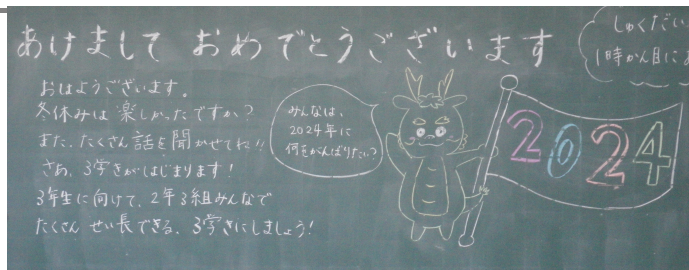 あけまして おめでとうございます
おはようございます。
冬休みは楽しかったですか?
また、たくさん話を聞かせてね!!
さあ、3学きがはじまります!
3年生に向けて、2年3組みんなで
たくさん せい長できる、3学きにしましょう!
みんなは、
2024年に
何をがんばりたい?
2024
しゅくだい
1時かん目に